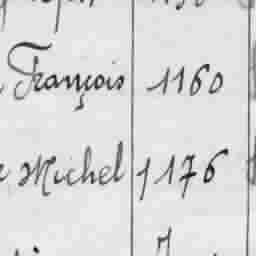 François 1160
Michel 1176